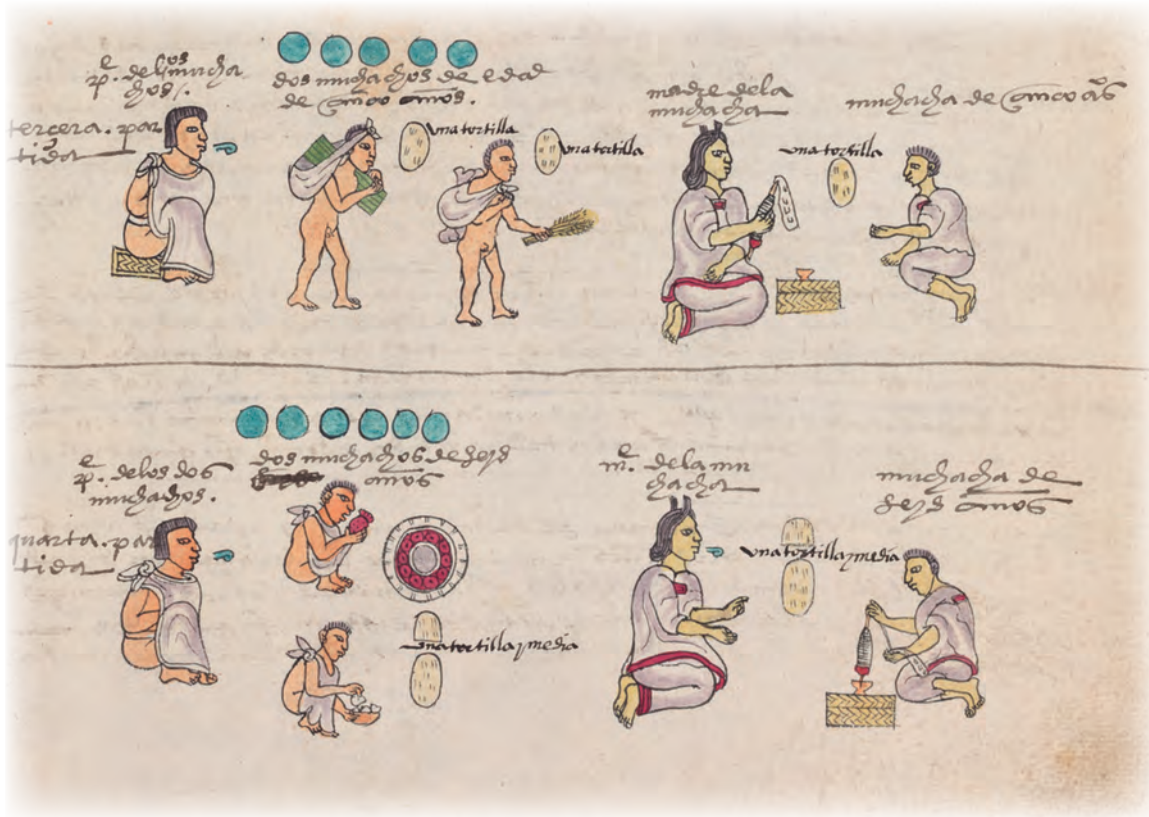 pe. delos mucha
chos/.
dos muchachos de edad
de cinco años.
madre dela
muchacha
muchacha de cinco aos
tercera. par
tida
una tortilla
una tortilla
una tortilla
pe. delos dos
muchachos.
dos muchachos de seys
años
me. dela mu
chacha
muchacha de
seys años
quarta. par
tida
una tortilla y media
una tortilla y media